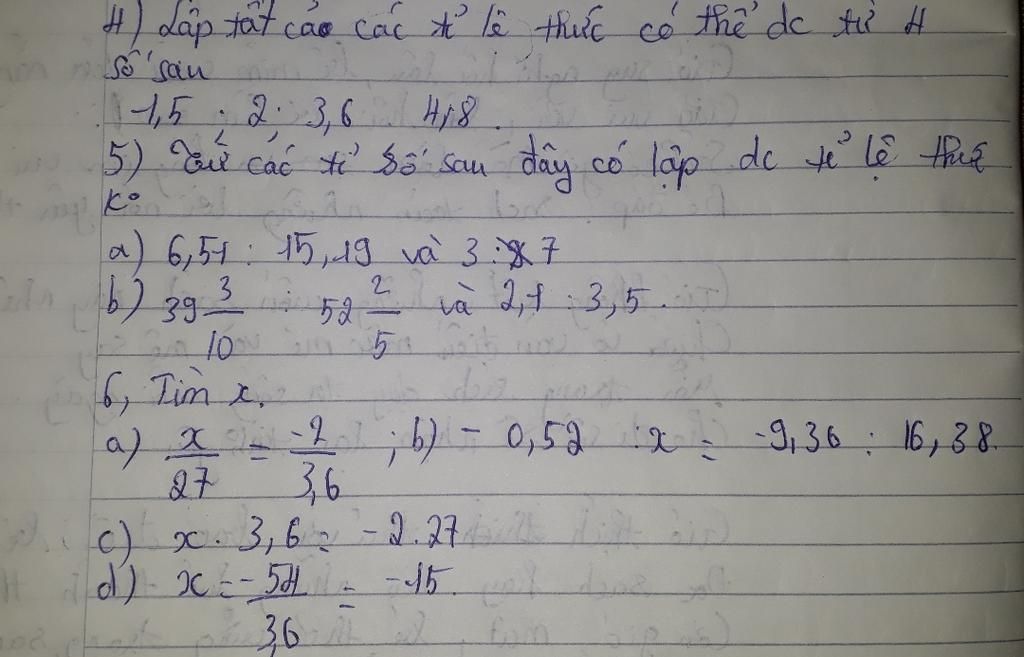 4) Lập tất cả các tỉ lệ thức có thể dc từ 4
số sau
1,5 ; 2 ; 3,6 4,8.
5) Từ các tỉ số sau đây có lập dc tỉ lệ thức
Ko
a) 6,51 : 15,19 và 3 : 7
b) 39 3/10 : 52 2/5 và 2,1 : 3,5.
6, Tìm x.
a) x/27 = -2/3,6 ; b) - 0,52 : x = -9,36 : 16,38.
c) x . 3,6 = -2.27
d) x = -54/3,6 = -15.